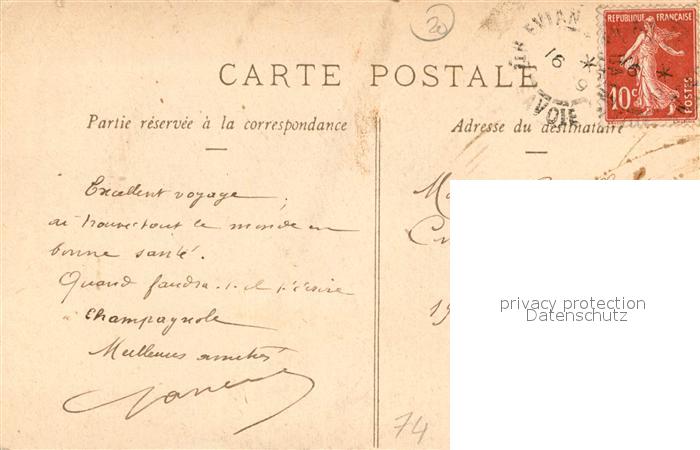 20
EVIAN
16
*
9
VOIE
REPUBLIQUE FRANÇAISE
10c
POSTES
CARTE POSTALE
Partie réservée à la correspondance
Adresse du destinataire
Excellent voyage,
ai trouvé tout le monde en
bonne santé.
Quand faudra-t-il t'écrire
à Champagnole
Meilleures amitiés
74
19
privacy protection
Datenschutz